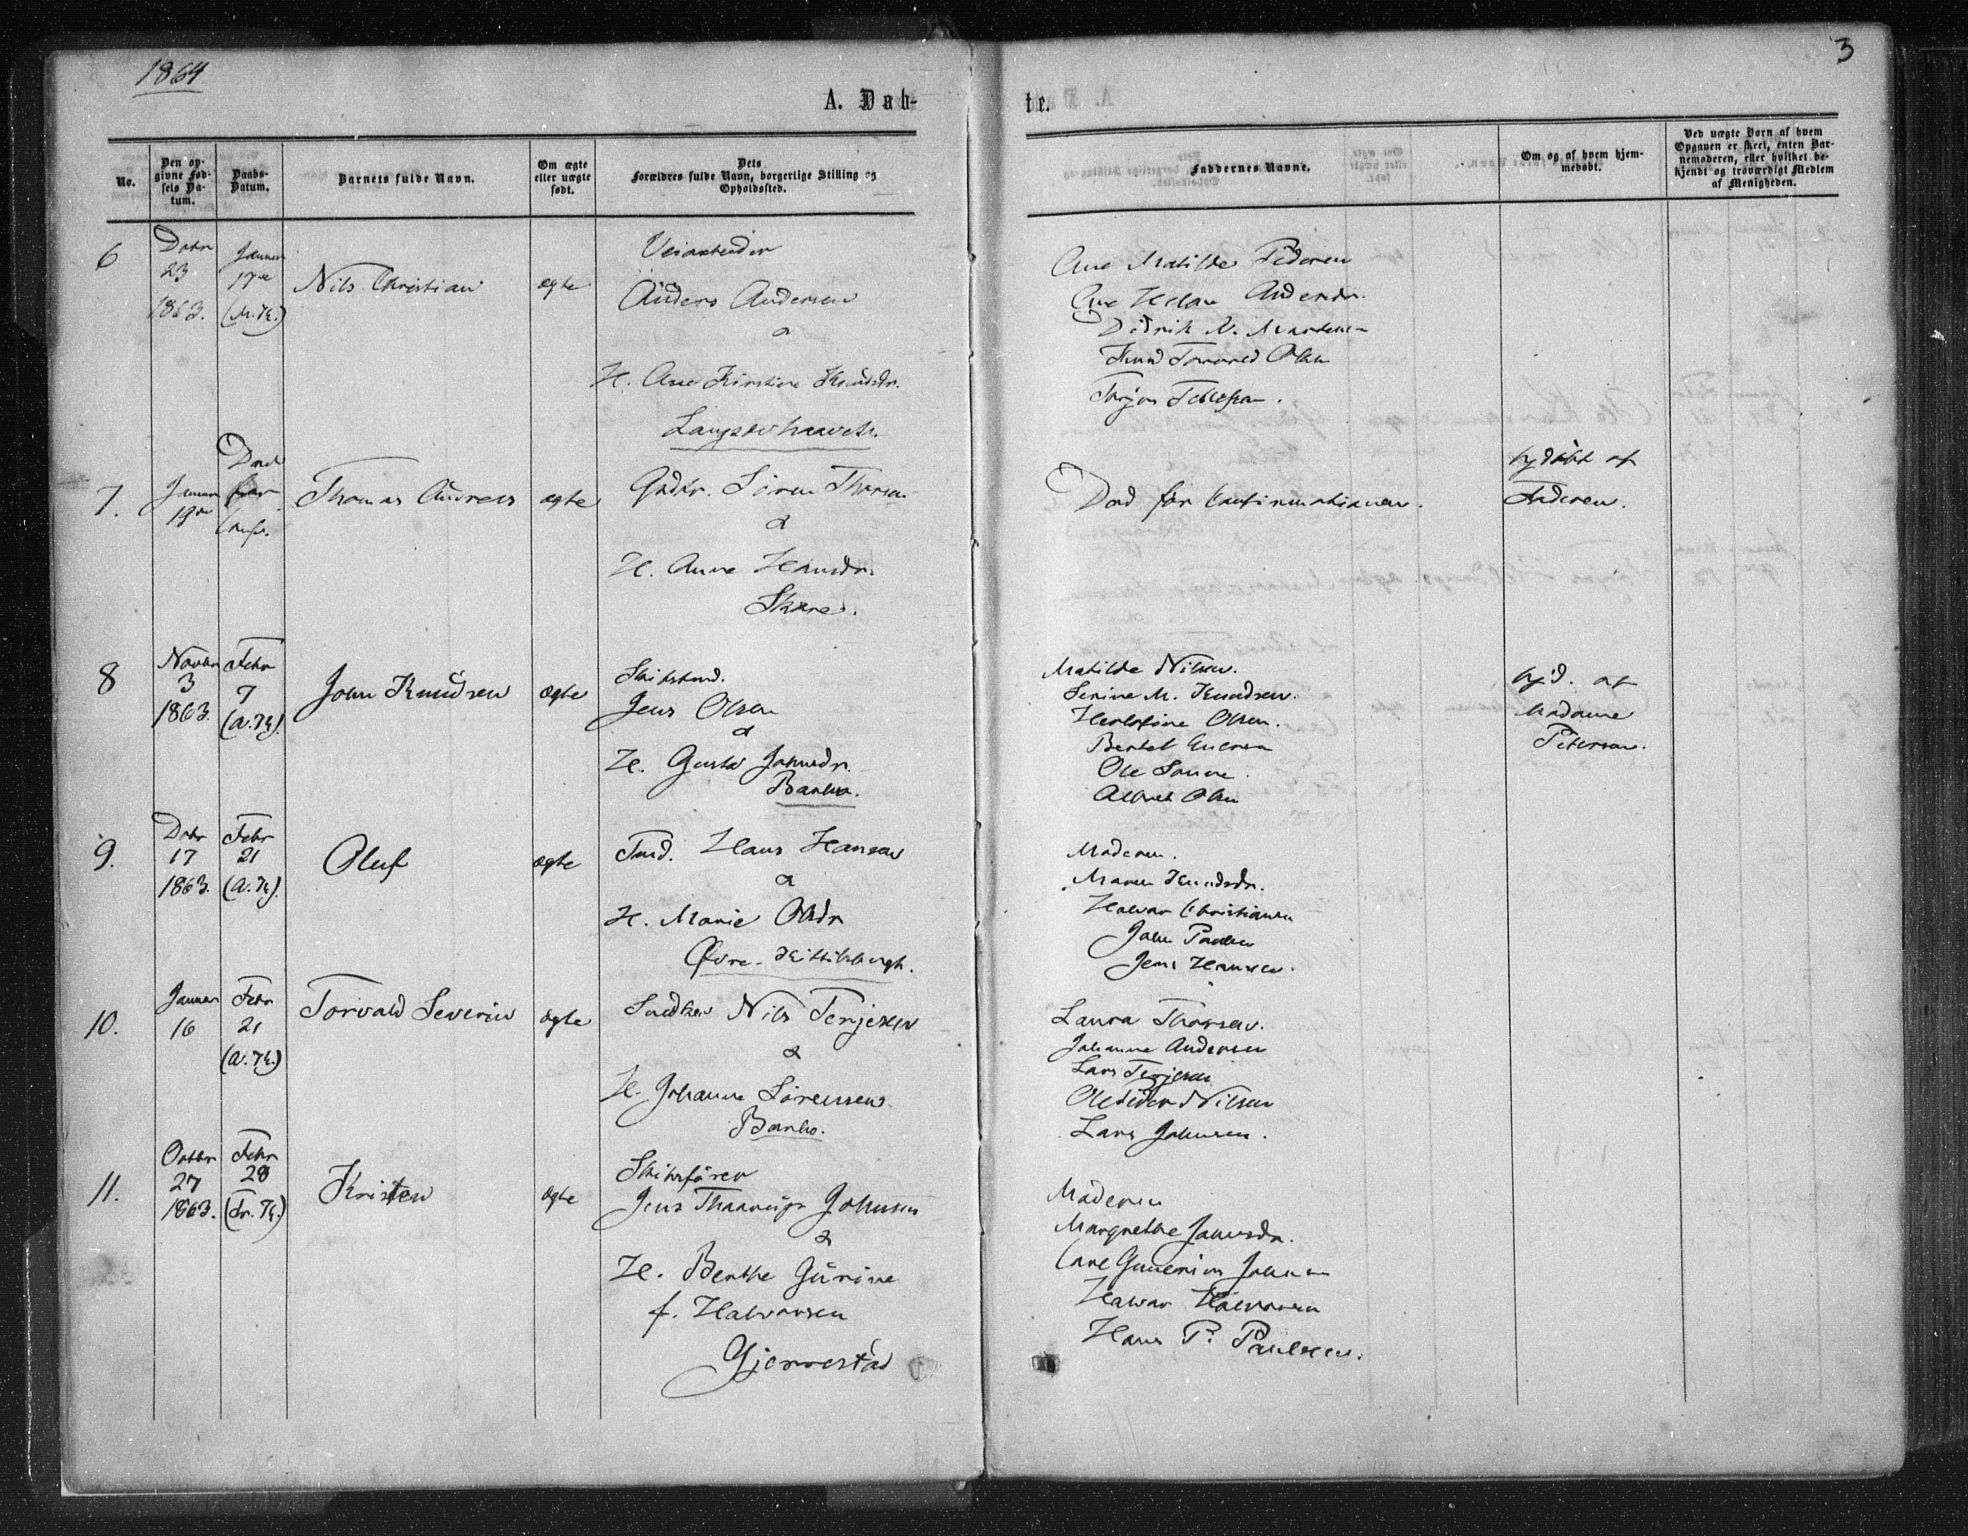 1864
3
A. Døb-
te.
No.
Den op-
givne Fød-
sels Da-
tum.
Daabs-
Datum.
Barnets fulde Navn.
Om ægte
eller uægte
født.
Dets
Forældres fulde Navn, borgerlige Stilling og
Opholdssted.
Faddernes Navne.
Om og af hvem hjem-
medøbt.
Ved uægte Børn af hvem
Opgaven er skeet, enten Bar-
nemoderen, eller hvilket be-
kjendt og troværdigt Medlem
af Menigheden.
6
Dcbr
23
1863.
Januar
17de
Nils Christian
ægte
Veiarbeider
Anders Andersen
&
H. Ane Kirstine Knudsdr.
Ane Matilde Pedersen
Ane Helene Andersdr.
Didrik N. Martens
Knud Torvald Olsen
Terjos Tellefsen.
7.
Januar
19de
Død
før
Thomas Andreas
ægte
Gdbr. Søren Thorsen
&
H. Anne Hansdr.
Skare.
Død før Confirmationen.
hjdøbt af
Faderen.
8
Novbr
3
1863.
Febr
7
(A.K.)
John Knudsen
ægte
Jens Olsen
&
H. Gusta Johnsdr.
Barbo.
Matilde Nilsen.
Serine M. Knudsen.
Olsen.
Bertel
Ole
Albret Olsen
hjd. af
Madame
Petersen.
9.
Dcbr
17
1863.
Febr
21
(A.K.).
Oluf
ægte
Tmd. Hans Hansen
&
H. Marie Olsdr
Øvre- Kittilsbugt.
Moderen.
Maren Knudsdr.
Halvor Christiansen
John Paulsen
Jens Hansen.
10.
Januar
16
Febr
21
(A.K.)
Torvald Severin
ægte
Snedker Nils Terjesen
&
H. Johanne Sørensen.
Barbo.
Laura Thorsen.
Johanne Andersen
Lars Terjesen
Ole Peder Nilsen
Lars Johnsen.
11.
Octbr
27
1863.
Febr
28
(Tr.K.)
Kristen
ægte
Skibsfører
Jens Thaarup Johnsen
&
H. Berthe Gurine
f. Halvorsen
Gjennestad
Moderen
Margrethe Johnsdr.
Carl Gunerius Johnsen
Halvor Halvorsen
Hans P. Paulsen.